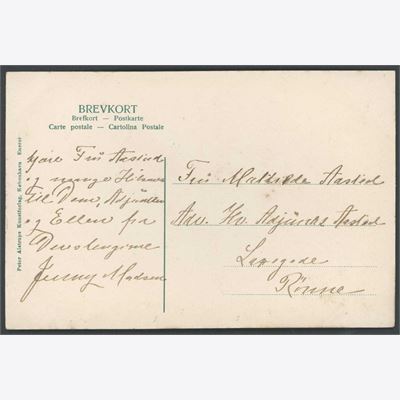 BREVKORT
Brefkort — Postkarte
Carte postale — Cartolina Postale
Peter Alstrups Kunstforlag, København Eneret
kjære Fru Aasted
og mange Hilsner
til Dem, Adjunkten
og Ellen fra
Deres hengivne
Jenny Madsen
Fru Mathilde Aasted
Adr. Hr. Adjunkt Aasted
Laxegade
Rønne